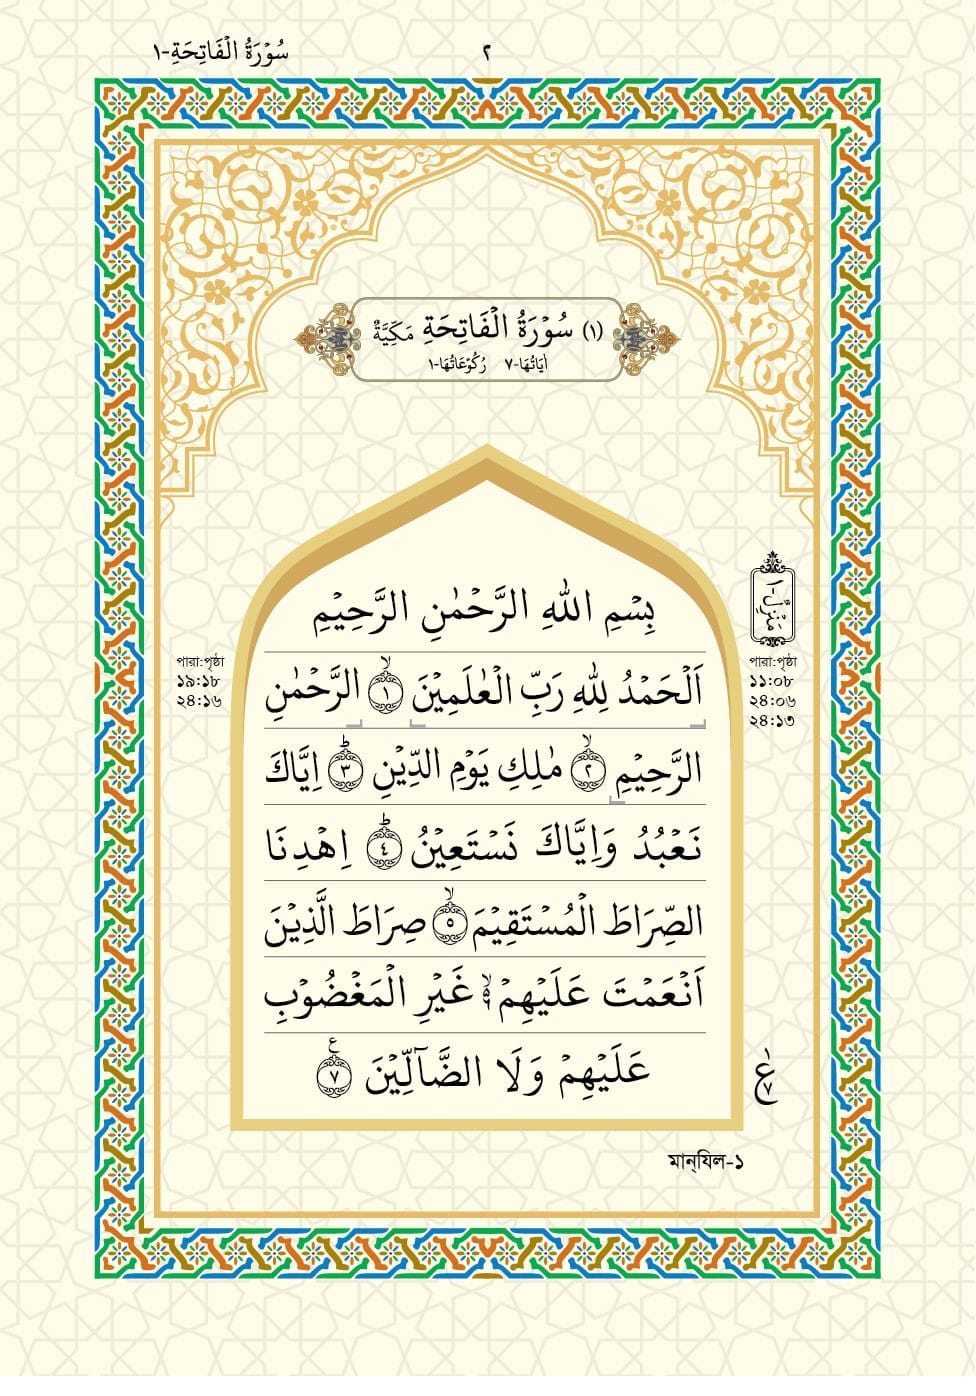 سُوْرَةُ الْفَاتِحَةِ-١
٢
(١) سُوْرَةُ الْفَاتِحَةِ مَكِّيَّةٌ
اٰيَاتُهَا-٧ رُكُوْعَاتُهَا-١
بِسْمِ اللهِ الرَّحْمٰنِ الرَّحِيْمِ
اَلْحَمْدُ لِلّٰهِ رَبِّ الْعٰلَمِيْنَ ۙ﴿١﴾ الرَّحْمٰنِ
الرَّحِيْمِ ۙ﴿٢﴾ مٰلِكِ يَوْمِ الدِّيْنِ ؕ﴿٣﴾ اِيَّاكَ
نَعْبُدُ وَاِيَّاكَ نَسْتَعِيْنُ ؕ﴿٤﴾ اِهْدِنَا
الصِّرَاطَ الْمُسْتَقِيْمَ ۙ﴿٥﴾ صِرَاطَ الَّذِيْنَ
اَنْعَمْتَ عَلَيْهِمْ ۙ۬ غَيْرِ الْمَغْضُوْبِ
عَلَيْهِمْ وَلَا الضَّآلِّيْنَ ﴿٧﴾
مَنْزِلٌ-١
পারা:পৃষ্ঠা
১১:০৮
২৪:০৬
২৪:১৩
পারা:পৃষ্ঠা
১৯:১৮
২৪:১৬
ع
٧
মান্‌যিল-১